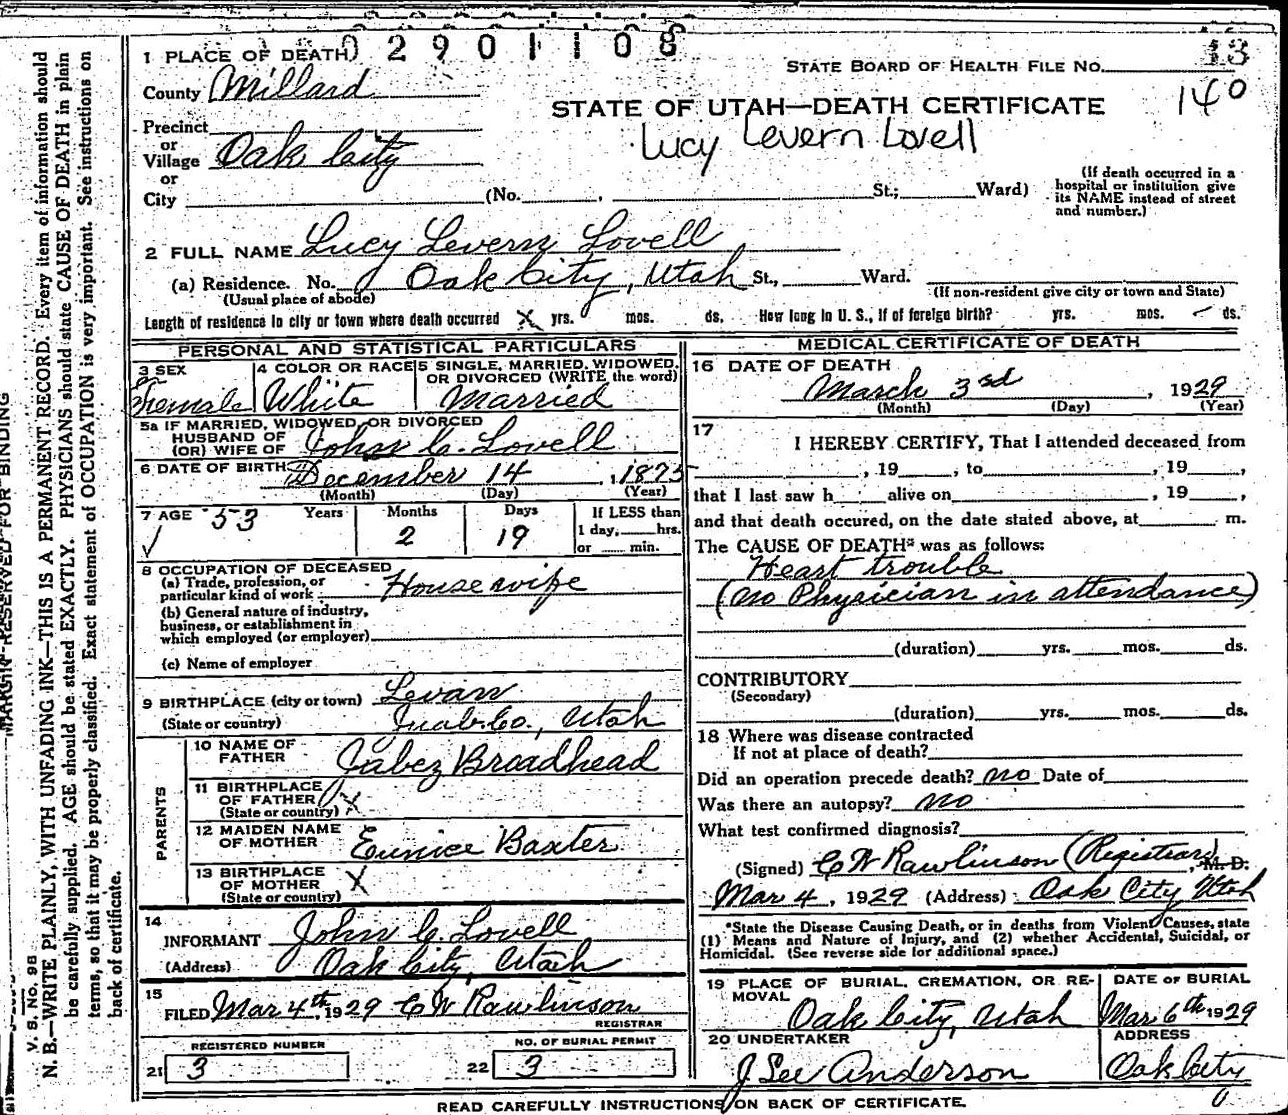 0 2 9 0 1 1 0 8
13
1 PLACE OF DEATH
STATE BOARD OF HEALTH FILE No.
County Millard
140
STATE OF UTAH—DEATH CERTIFICATE
Lucy Levern Lovell
Precinct
or
Village Oak City
or
City (No. St.; Ward)
(If death occurred in a
hospital or institution give
its NAME instead of street
and number.)
2 FULL NAME Lucy Levern Lovell
(a) Residence. No. Oak City, Utah St., Ward.
(Usual place of abode) (If non-resident give city or town and State)
Length of residence in city or town where death occurred X yrs. mos. ds. How long in U. S., if of foreign birth? yrs. mos. – ds.
PERSONAL AND STATISTICAL PARTICULARS
3 SEX 4 COLOR OR RACE 5 SINGLE, MARRIED, WIDOWED,
OR DIVORCED (WRITE the word)
Female White Married
5a IF MARRIED, WIDOWED, OR DIVORCED
HUSBAND OF
(OR) WIFE OF John C. Lovell
6 DATE OF BIRTH December 14, 1875
(Month) (Day) (Year)
7 AGE 53 Years Months Days If LESS than
2 19 1 day, hrs.
or min.
8 OCCUPATION OF DECEASED
(a) Trade, profession, or
particular kind of work Housewife
(b) General nature of industry,
business, or establishment in
which employed (or employer)
(c) Name of employer
9 BIRTHPLACE (city or town) Levan
(State or country) Juab Co., Utah
PARENTS
10 NAME OF
FATHER Jabez Broadhead
11 BIRTHPLACE
OF FATHER
(State or country) X
12 MAIDEN NAME
OF MOTHER Eunice Baxter
13 BIRTHPLACE
OF MOTHER X
(State or country)
14
INFORMANT John C Lovell
(Address) Oak City, Utah
15
FILED Mar 4th, 1929 C W Rawlinson
REGISTRAR
REGISTERED NUMBER NO. OF BURIAL PERMIT
21 3 22 3
MEDICAL CERTIFICATE OF DEATH
16 DATE OF DEATH
March 3rd, 1929
(Month) (Day) (Year)
17
I HEREBY CERTIFY, That I attended deceased from
, 19 , to , 19 ,
that I last saw h alive on , 19 ,
and that death occured, on the date stated above, at m.
The CAUSE OF DEATH* was as follows:
Heart trouble
(No Physician in attendance)
(duration) yrs. mos. ds.
CONTRIBUTORY
(Secondary)
(duration) yrs. mos. ds.
18 Where was disease contracted
If not at place of death?
Did an operation precede death? no Date of
Was there an autopsy? no
What test confirmed diagnosis?
(Signed) C W Rawlinson (Registrar), M. D.
Mar 4, 1929 (Address) Oak City Utah
*State the Disease Causing Death, or in deaths from Violent Causes, state
(1) Means and Nature of Injury, and (2) whether Accidental, Suicidal, or
Homicidal. (See reverse side for additional space.)
19 PLACE OF BURIAL, CREMATION, OR RE-
MOVAL
Oak City, Utah
DATE OF BURIAL
Mar 6th 1929
20 UNDERTAKER
J Lee Anderson
ADDRESS
Oak City
READ CAREFULLY INSTRUCTIONS ON BACK OF CERTIFICATE.
MARGIN RESERVED FOR BINDING
V. S. No. 98
N. B.—WRITE PLAINLY, WITH UNFADING INK—THIS IS A PERMANENT RECORD. Every item of information should
be carefully supplied. AGE should be stated EXACTLY. PHYSICIANS should state CAUSE OF DEATH in plain
terms, so that it may be properly classified. Exact statement of OCCUPATION is very important. See instructions on
back of certificate.